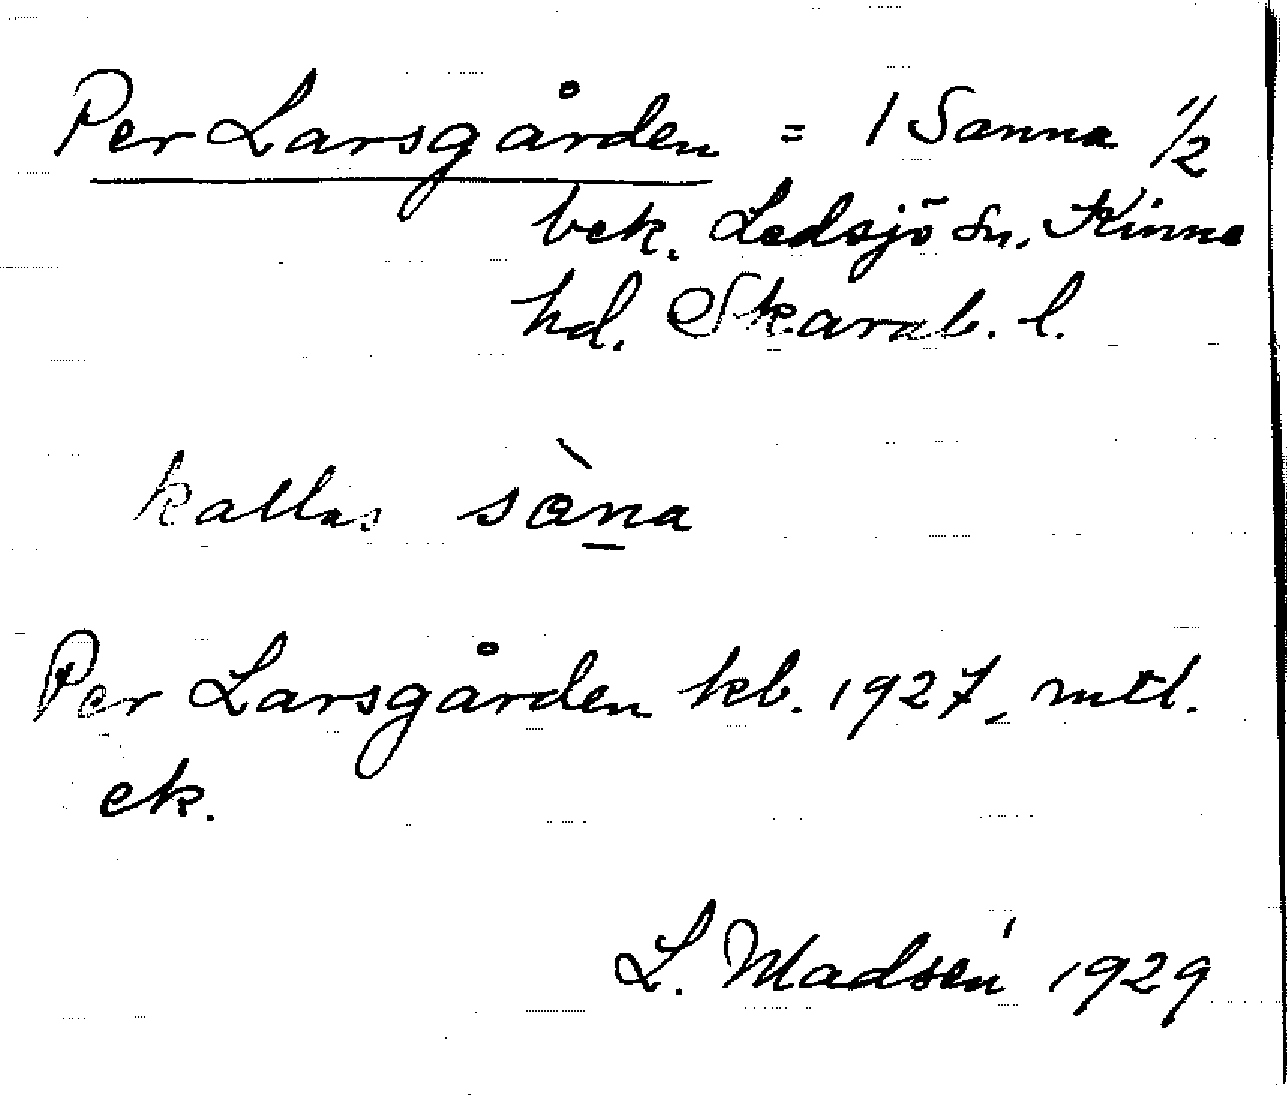 Per Larsgården = 1 Sanna 1/2
bek. Ledsjö sn, Kinne
hd. Skarab. l.
kallas sàn̲a
Per Larsgården kb. 1927, mtl.
ek.
L. Madsén 1929